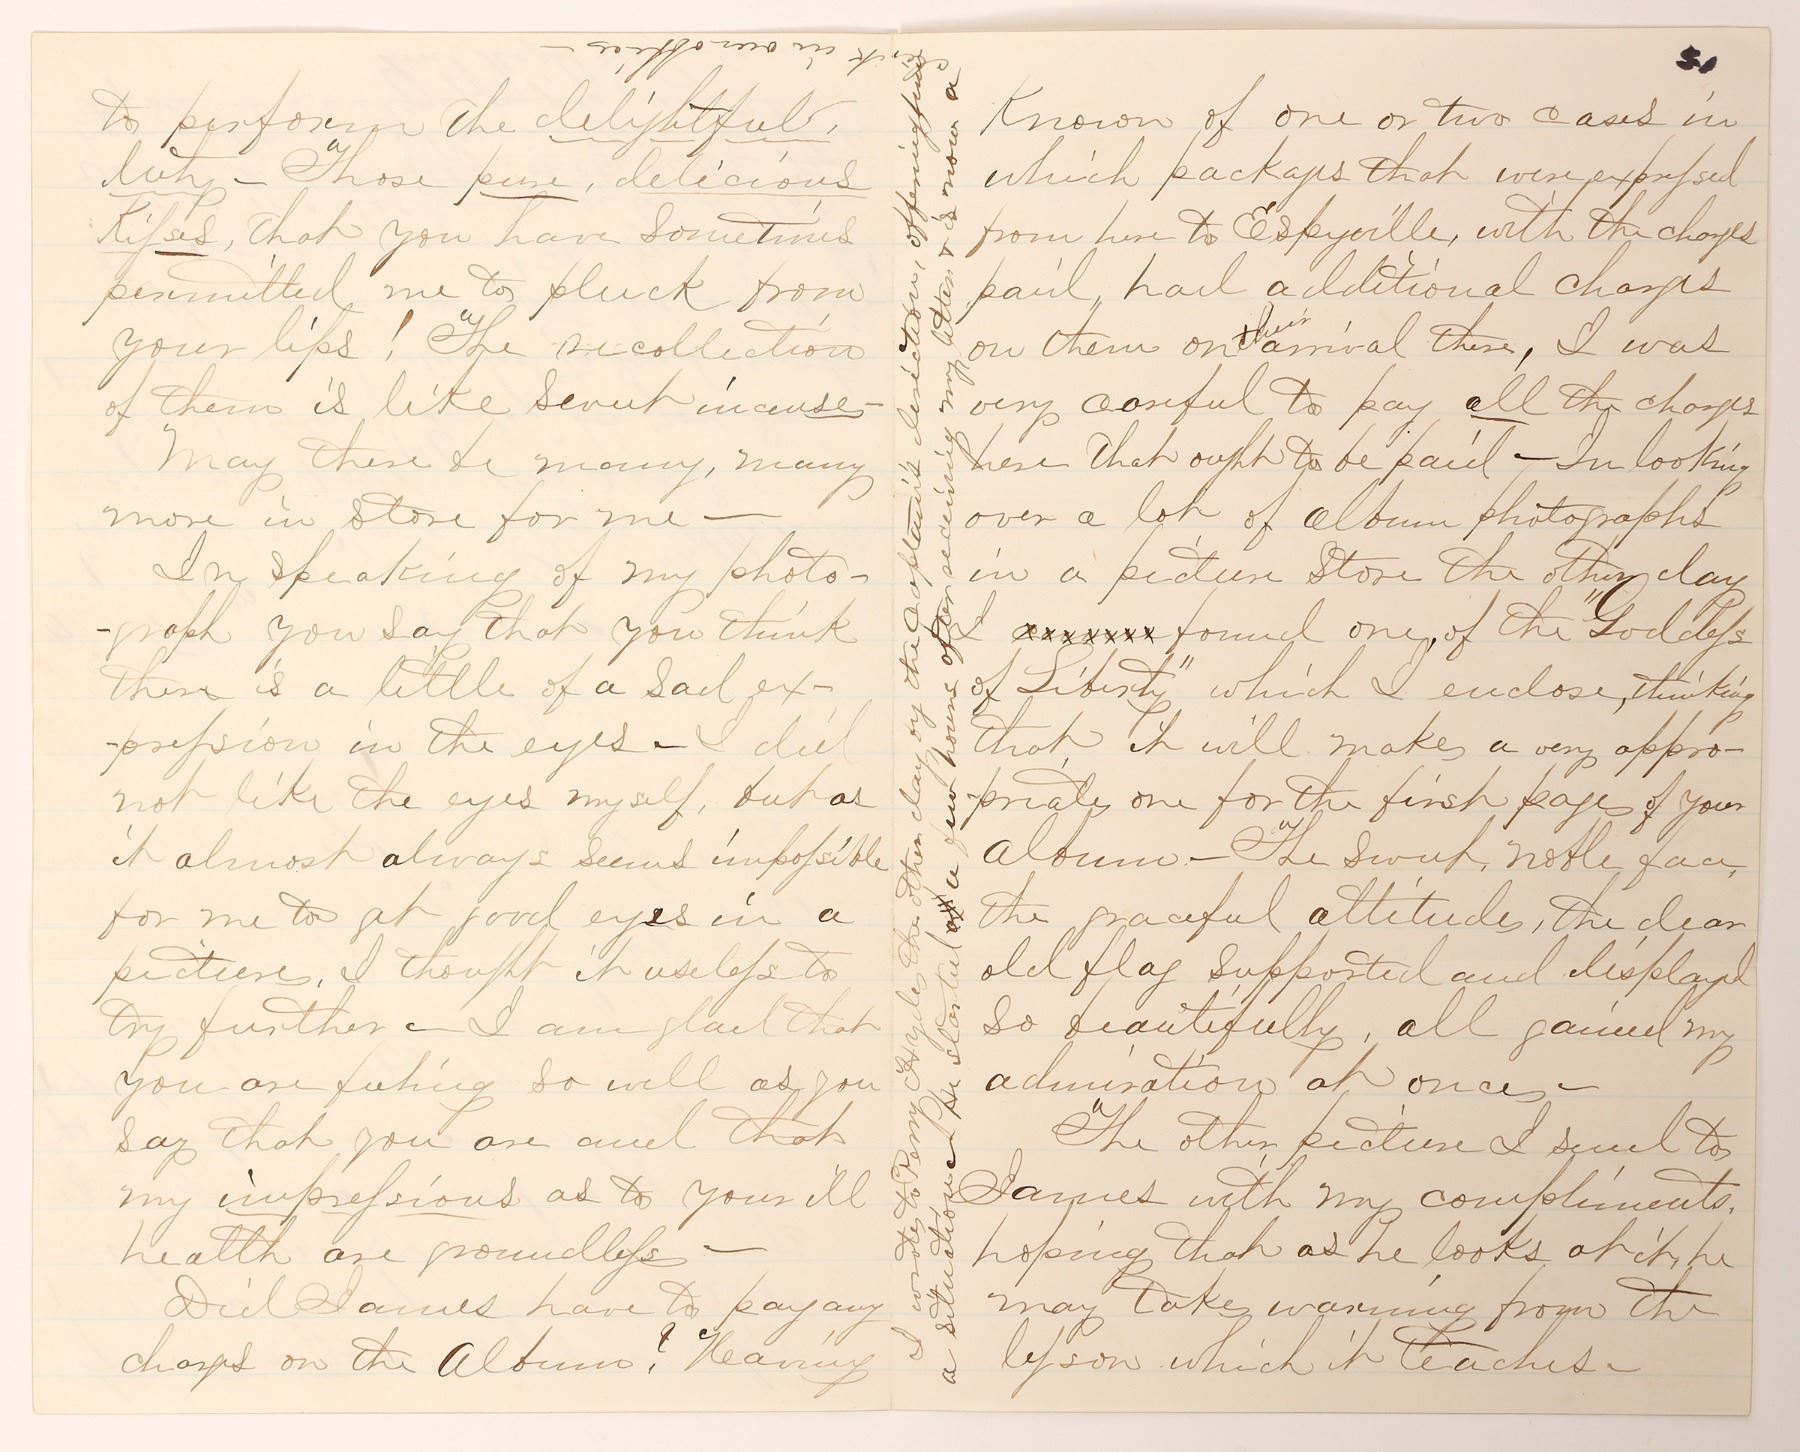 to perform the delightful
duty – Those pure, delicious
Kisses, that you have sometimes
permitted me to pluck from
your lips! The recollection
of them is like sweet incense –
May there be many, many
more in store for me –
In speaking of my photo-
-graph you say that you think
there is a little of a sad ex-
-pression in the eyes – I did
not like the eyes myself, but as
it almost always seems impossible
for me to get good eyes in a
picture, I thought it useless to
try further – I am glad that
you are feeling so well as you
say that you are and that
my impressions as to your ill
health are groundless –
Did James have to pay any
charges on the Album? Having
51
Known of one or two cases in
which packages that were expressed
from here to Espyville, with the charges
paid, had additional charges
on them on their arrival there, I was
very careful to pay all the charges
here that ought to be paid – In looking
over a lot of album photographs
in a picture store the other day
I xxxxxxx found one, of the "Goddess
of Liberty" which I enclose, thinking
that it will make a very appro-
-priate one for the first page of your
Album – The sweet, noble face,
the graceful attitude, the dear
old flag supported and displayed
so beautifully, all gained my
admiration at once –
The other picture I send to
James with my compliments,
hoping that as he looks at it, he
may take warning from the
lesson which it teaches –
I wrote to Perry the other day by the Captain's direction, offering him
a situation – He started a few hours after receiving my letter & is now a
clerk in our office –